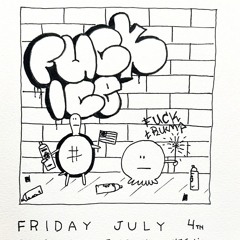 FUCK
ICE
FUCK
TRUMP
#
FRIDAY JULY 4TH